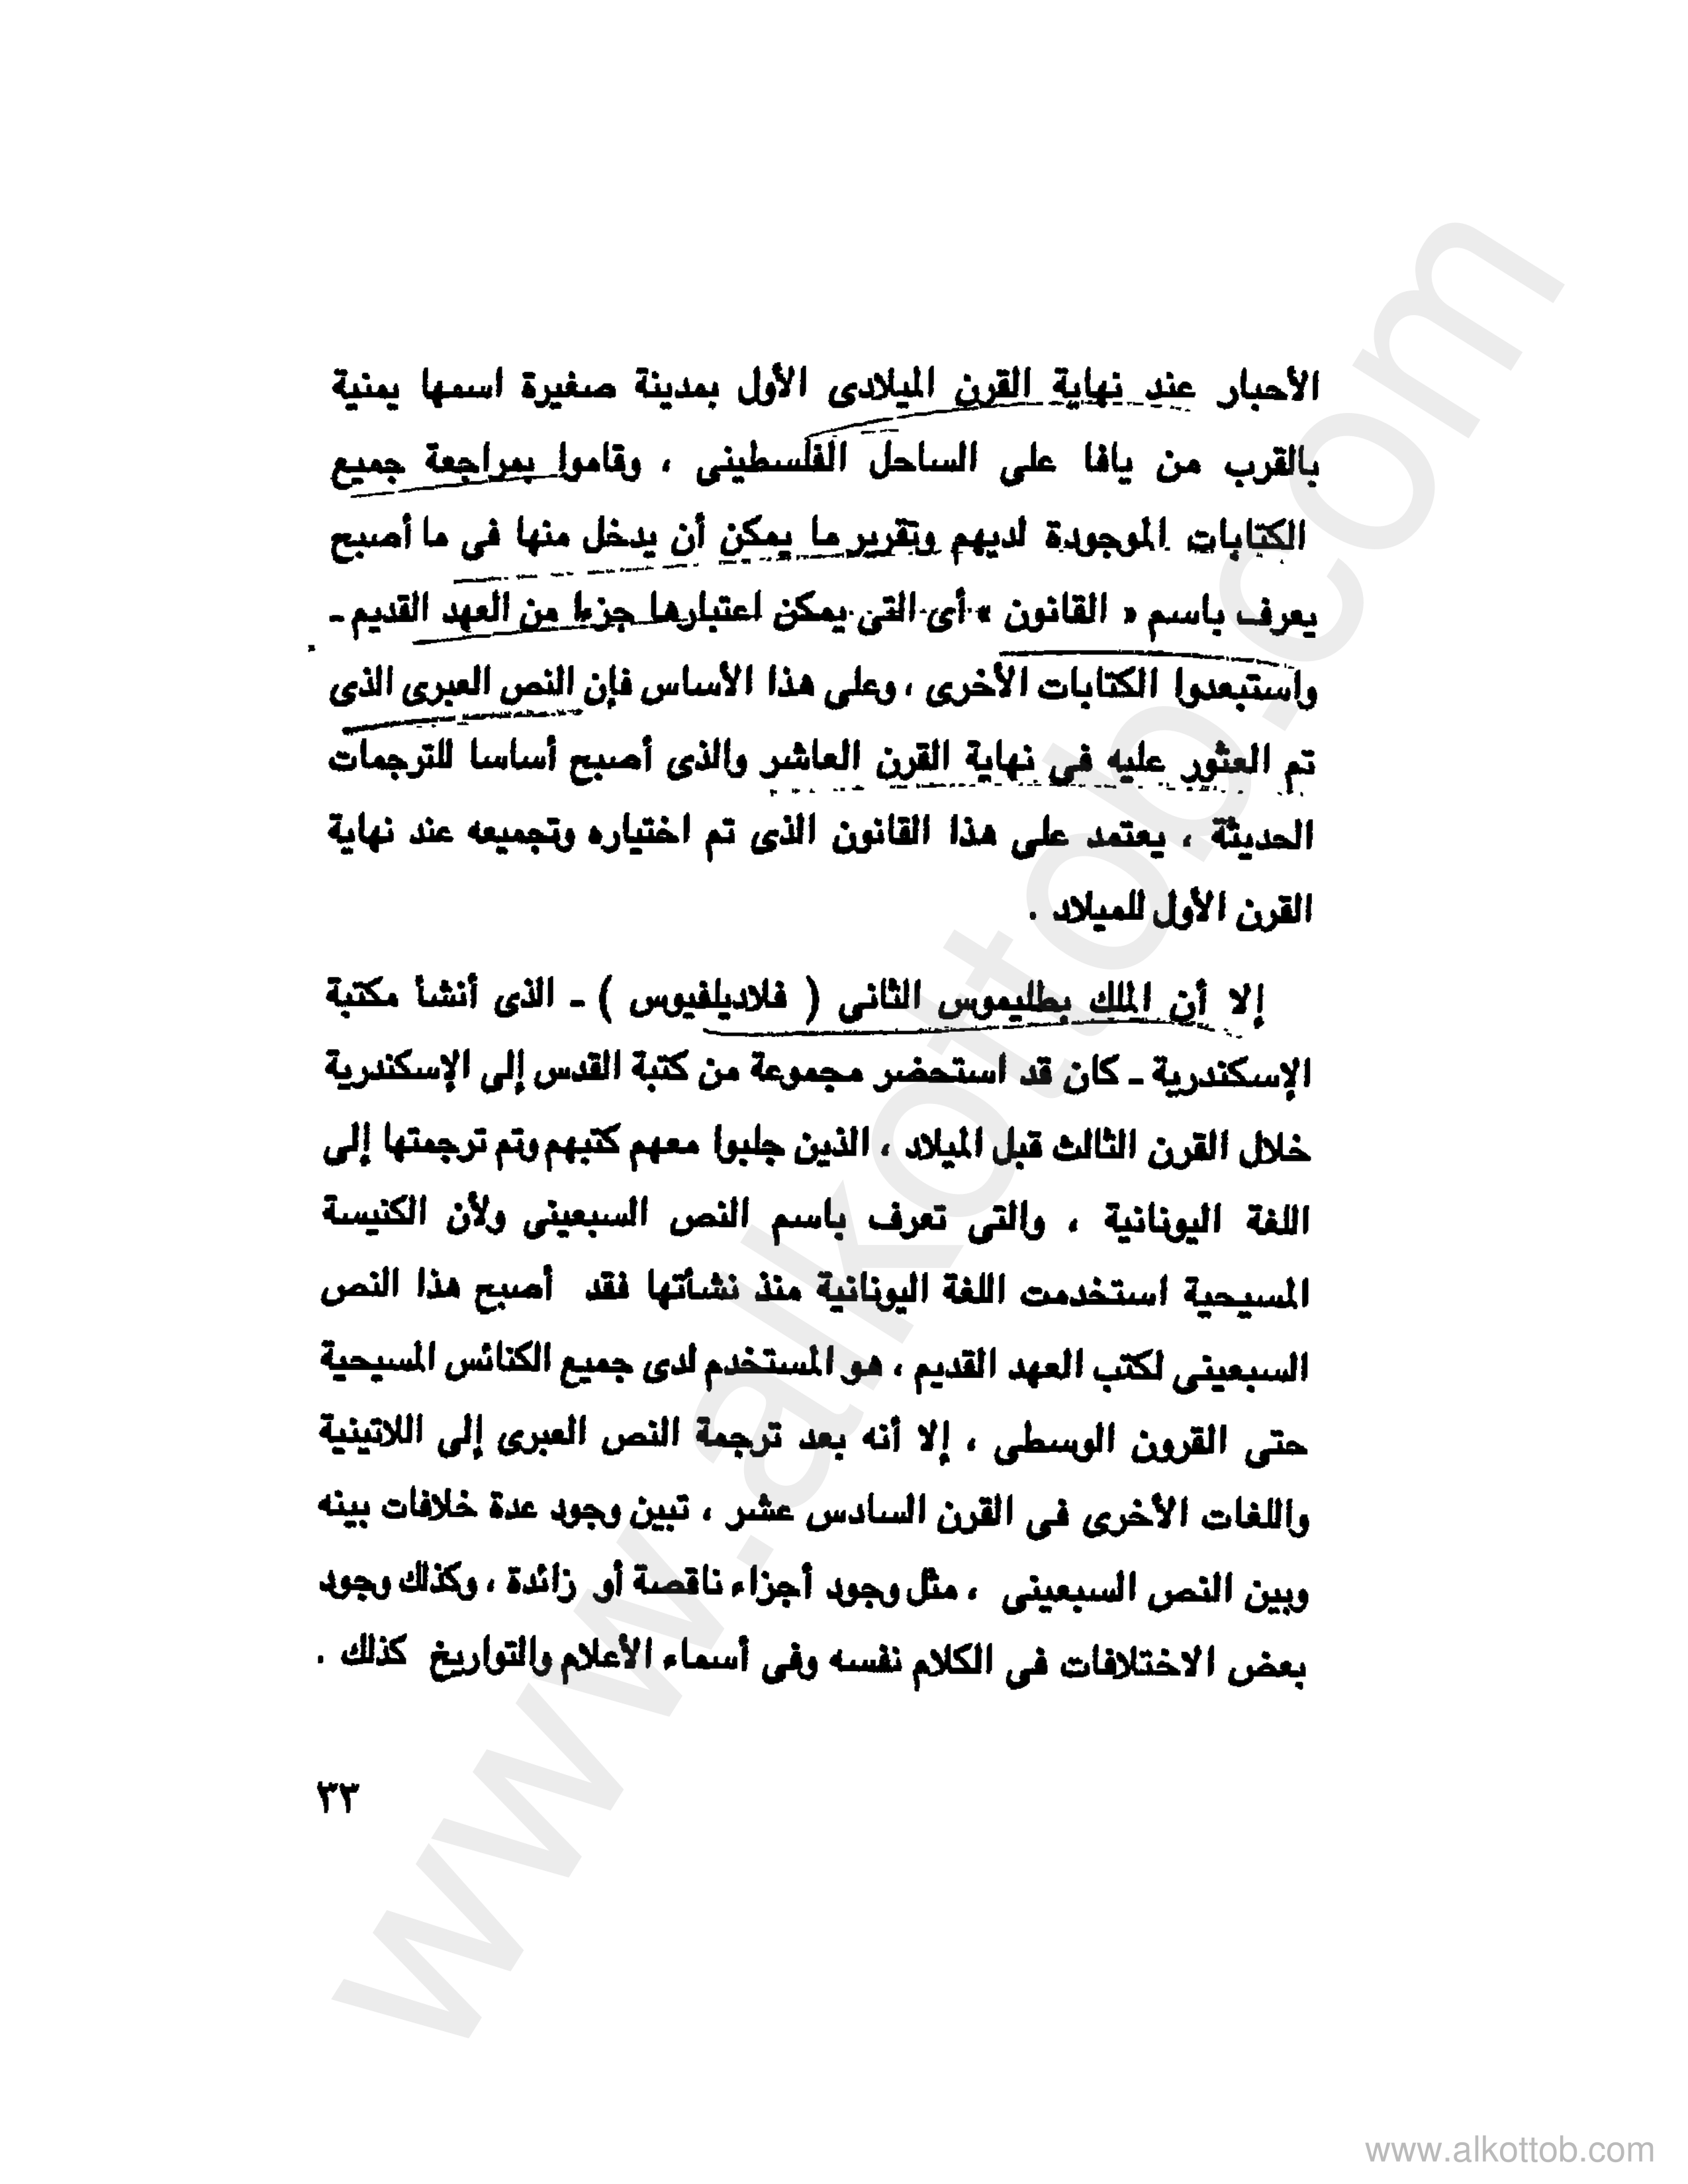 الأحبار عند نهاية القرن الميلادى الأول بمدينة صغيرة اسمها يمنية
بالقرب من يافا على الساحل الفلسطينى ، وقاموا بمراجعة جميع
الكتابات الموجودة لديهم وتقرير ما يمكن أن يدخل منها فى ما أصبح
يعرف باسم « القانون » أى التى يمكن اعتبارها جزءا من العهد القديم ـ
واستبعدوا الكتابات الأخرى ، وعلى هذا الأساس فإن النص العبرى الذى
تم العثور عليه فى نهاية القرن العاشر والذى أصبح أساسا للترجمات
الحديثة ، يعتمد على هذا القانون الذى تم اختياره وتجميعه عند نهاية
القرن الأول للميلاد .
إلا أن الملك بطليموس الثانى ( فلاديلفيوس ) ـ الذى أنشأ مكتبة
الإسكندرية ـ كان قد استحضر مجموعة من كتبة القدس إلى الإسكندرية
خلال القرن الثالث قبل الميلاد ، الذين جلبوا معهم كتبهم وتم ترجمتها إلى
اللغة اليونانية ، والتى تعرف باسم النص السبعينى ولأن الكنيسة
المسيحية استخدمت اللغة اليونانية منذ نشأتها فقد أصبح هذا النص
السبعينى لكتب العهد القديم ، هو المستخدم لدى جميع الكنائس المسيحية
حتى القرون الوسطى ، إلا أنه بعد ترجمة النص العبرى إلى اللاتينية
واللغات الأخرى فى القرن السادس عشر ، تبين وجود عدة خلافات بينه
وبين النص السبعينى ، مثل وجود أجزاء ناقصة أو زائدة ، وكذلك وجود
بعض الاختلافات فى الكلام نفسه وفى أسماء الأعلام والتواريخ كذلك .
٣٣
www.alkottob.com
www.alkottob.com